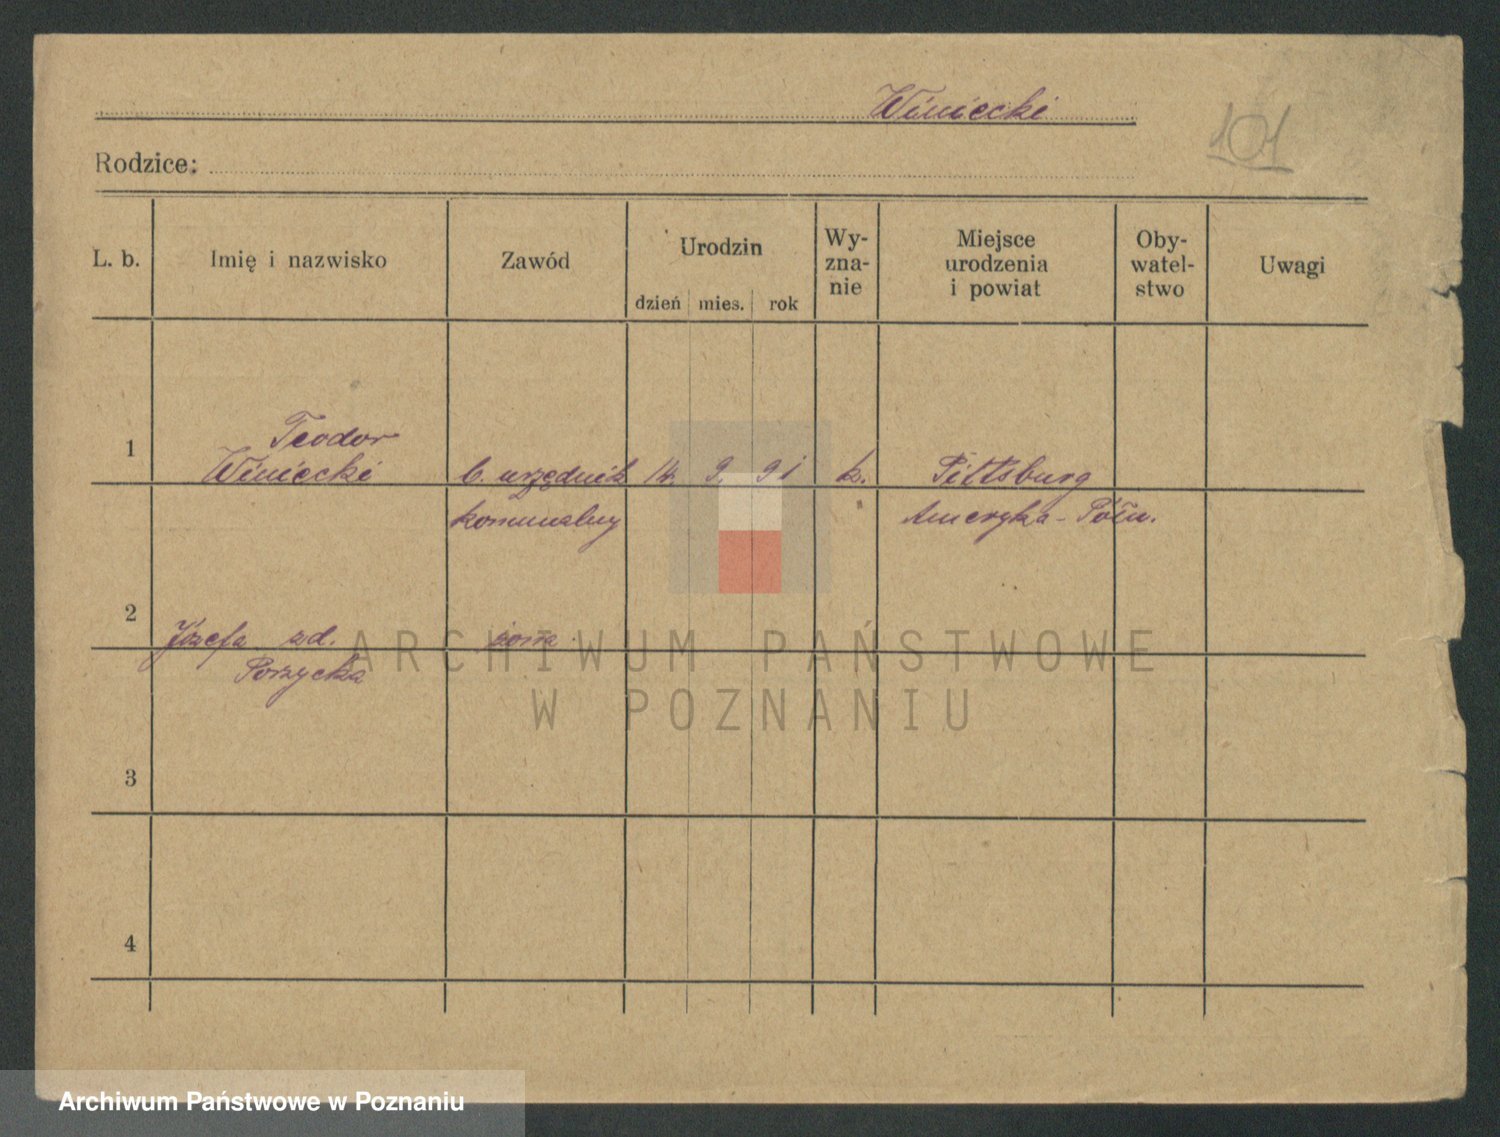 Winiecki
101
Rodzice:
L. b.
Imię i nazwisko
Zawód
Urodzin
dzień mies. rok
Wy-
zna-
nie
Miejsce
urodzenia
i powiat
Oby-
watel-
stwo
Uwagi
1
Teodor
Winiecki
b. urzędnik
komunalny
14. 9. 91
k.
Pittsburg
Ameryka - Półn.
2
Józefa zd.
żona
3
4
ARCHIWUM PAŃSTWOWE
W POZNANIU
Archiwum Państwowe w Poznaniu